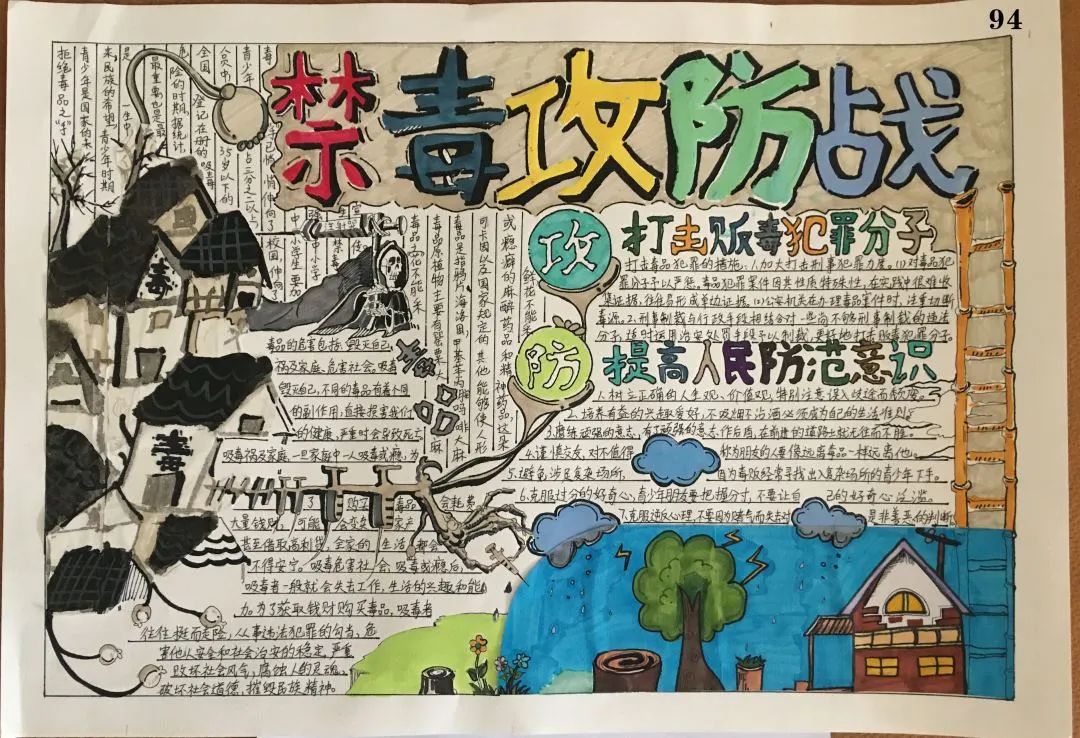 94
禁毒攻防战
毒
青少年
人员中
占三分之二以上
35岁以下的
全国登记在册的吸毒
危险的时期,据统计,
最重要也是最
是一生中
来,民族的希望,青少年时期
青少年是国家的未
拒绝毒品之“手”
毒
毒
攻
打击贩毒犯罪分子
打击毒品犯罪的措施:1.加大打击刑事犯罪力度。(1)对毒品犯
罪分子予以严惩。毒品犯罪案件因其性质特殊性,在实践中很难收
集证据,往往易形成单切证据。(2)公安机关在办理毒品案件时,注重切断
毒源。2.刑事制裁与行政手段相结合对一些尚不够刑事制裁的违法
分子,适时运用治安处罚手段予以制裁,更好地打击贩毒犯罪分子。
防
提高人民防范意识
1.树立正确的人生观、价值观,特别注意误入歧途而软废。
2.培养有益的兴趣爱好,不吸烟不沾酒必须成为自己的生活准则。
3.磨练顽强的意志,有了顽强的意志作后盾,在前进的道路上就无往而不胜。
4.谨慎交友,对不值得称为朋友的人要像远离毒品一样远离他。
5.避免涉足复杂场所,因为毒贩经常寻找出入复杂场所的青少年下手。
6.克服过分的好奇心,青少年朋友要把握分寸,不要让自己的好奇心泛滥。
7.克服逆反心理,不要因为赌气而失去对是非善恶的判断
毒品
或瘾癖的麻醉药品和精神药品,这朵
可卡因以及国家规定的其他能够使人形
毒品是指鸦片、海洛因、甲基苯丙胺吗啡大麻
毒品原植物主要有罂粟
毒品之花不能采
毒品的危害包括:毁灭自己,
祸及家庭,危害社会。吸毒
毁灭自己,不同的毒品有着不同
的副作用,直接损害我们
的健康,严重时会导致死亡
吸毒祸及家庭,一旦家每中一人吸毒成瘾,为
了购买毒品会耗费
大量钱财,可能会变卖家产
甚至借取高利贷,全家的生活都会
不得安宁。吸毒危害社会,吸毒成瘾后,
吸毒者一般就会失去工作,生活的兴趣和能
力。为了获取钱财购买毒品,吸毒者
往往挺而走险,从事违法犯罪的勾当,危
害他人安全和社会治安的稳定,严重
败坏社会风气,腐蚀人的灵魂,
破坏社会道德,摧毁民族精神。